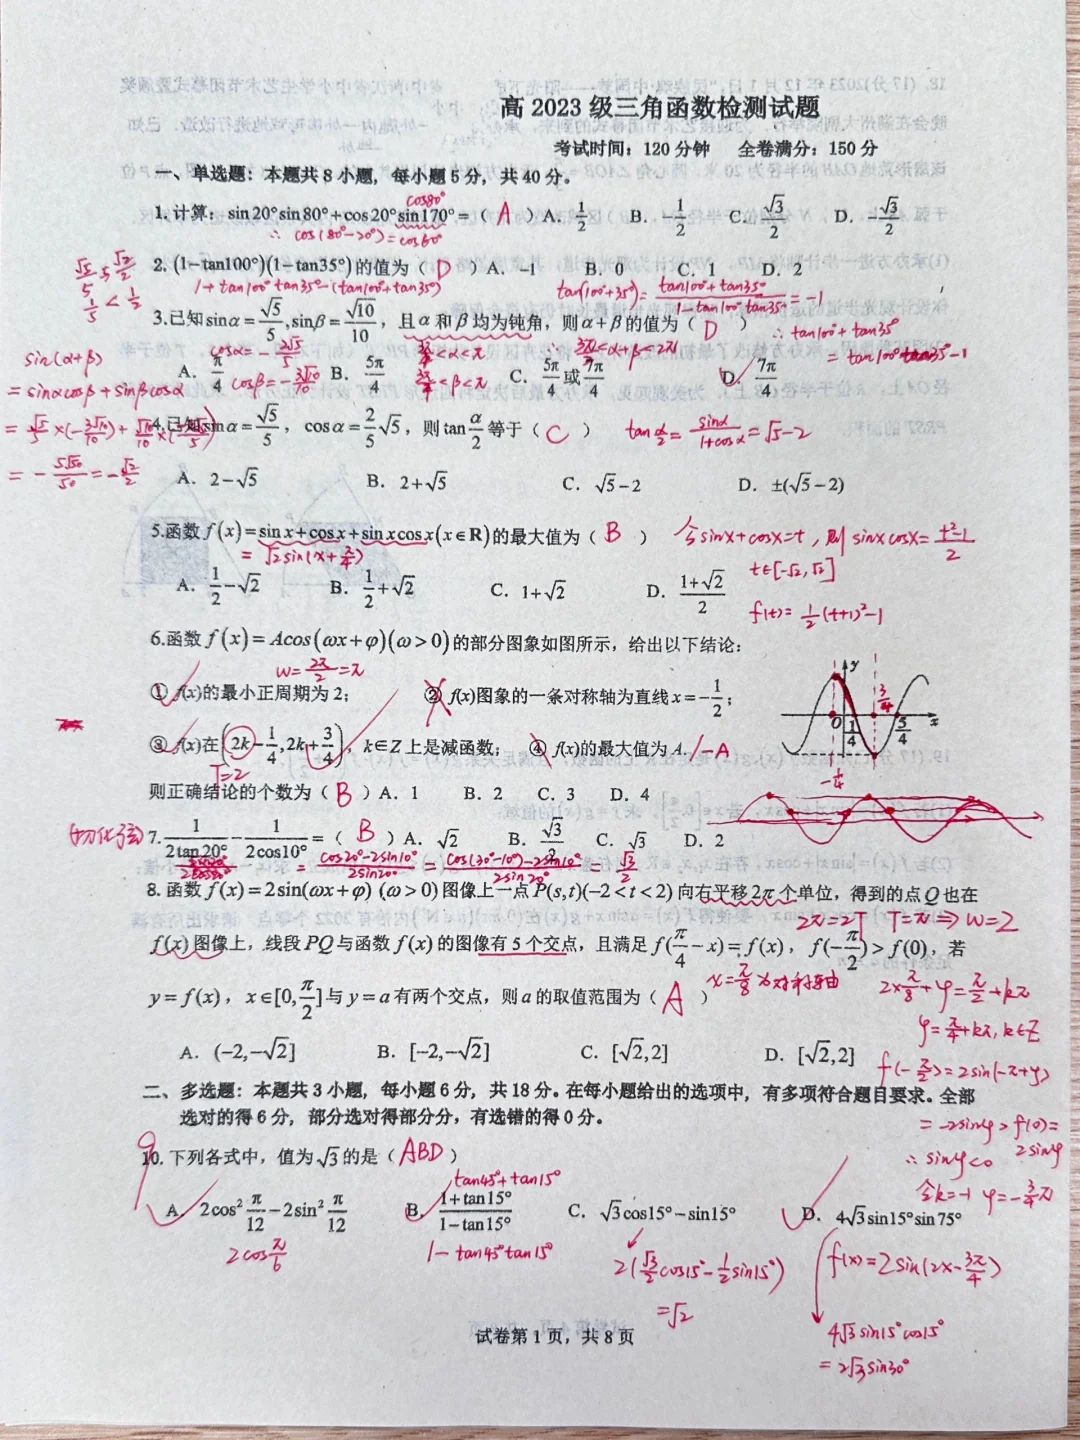 高 2023 级三角函数检测试题
考试时间：120 分钟　全卷满分：150 分
一、单选题：本题共 8 小题，每小题 5 分，共 40 分。
cos80°
1. 计算：sin20°sin80°+cos20°sin170°=（ A ）A. 1/2　B. -1/2　C. √3/2　D. -√3/2
∴ cos(80°-20°)=cos60°
2. (1-tan100°)(1-tan35°)的值为（ D ）A. -1　B. 0　C. 1　D. 2
1+tan100°tan35°-(tan100°+tan35°)
tan(100°+35°)=(tan100°+tan35°)/(1-tan100°tan35°)=-1
∴ tan100°+tan35°
=tan100°tan35°-1
3.已知sinα=√5/5,sinβ=√10/10，且α和β均为钝角，则α+β的值为（ D ）
cosα=-2√5/5
cosβ=-3√10/10
3π/4<α<π
3π/4<β<π
∴ 3π/2<α+β<2π
√5/5 √2/2
1/5 < 1/2
A. π/4　B. 5π/4　C. 5π/4或7π/4　D. 7π/4
sin(α+β)
=sinαcosβ+sinβcosα
=√5/5×(-3√10/10)+√10/10×(-2√5/5)
=-5√50/50=-√2/2
4.已知sinα=√5/5，cosα=2/5√5，则tanα/2等于（ C ）
tanα/2=sinα/(1+cosα)=√5-2
A. 2-√5　B. 2+√5　C. √5-2　D. ±(√5-2)
5.函数f(x)=sinx+cosx+sinxcosx(x∈R)的最大值为（ B ）
=√2sin(x+π/4)
令sinx+cosx=t，则sinxcosx=(t²-1)/2
t∈[-√2,√2]
f(t)=1/2(t+1)²-1
A. 1/2-√2　B. 1/2+√2　C. 1+√2　D. (1+√2)/2
6.函数f(x)=Acos(ωx+φ)(ω>0)的部分图象如图所示，给出以下结论：
ω=2π/2=π
①f(x)的最小正周期为2；　②f(x)图象的一条对称轴为直线x=-1/2；
③f(x)在(2k-1/4,2k+3/4)，k∈Z上是减函数；　④f(x)的最大值为A.
T=2
/-A
y
O 1/4 3/4 5/4 x
-1/4
则正确结论的个数为（ B ）A. 1　B. 2　C. 3　D. 4
(切化弦)
7. 1/(2tan20°)-1/(2cos10°)=（ B ）A. √2　B. √3/2　C. √3　D. 2
=(cos20°-2sin10°)/(2sin20°)=(cos(30°-10°)-2sin10°)/(2sin20°)=√3/2
8. 函数f(x)=2sin(ωx+φ) (ω>0)图像上一点P(s,t)(-2<t<2)向右平移2π个单位，得到的点Q也在
2π=2T T=π⇒ω=2
f(x)图像上，线段PQ与函数f(x)的图像有5个交点，且满足f(π/4-x)=f(x)，f(-π/2)>f(0)，若
x=π/8为对称轴
y=f(x)，x∈[0,π/2]与y=a有两个交点，则a的取值范围为（ A ）
2×π/8+φ=π/2+kπ
φ=π/4+kπ,k∈Z
A. (-2,-√2]　B. [-2,-√2]　C. [√2,2]　D. [√2,2]
f(-π/2)=2sin(-π+φ)
=-2sinφ>f(0)=2sinφ
∴ sinφ<0
令k=-1 φ=-3/4π
f(x)=2sin(2x-3π/4)
二、多选题：本题共 3 小题，每小题 6 分，共 18 分。在每小题给出的选项中，有多项符合题目要求。全部
选对的得 6 分，部分选对得部分分，有选错的得 0 分。
9
10. 下列各式中，值为√3的是（ ABD ）
tan45°+tan15°
A. 2cos²π/12-2sin²π/12　B. (1+tan15°)/(1-tan15°)　C. √3cos15°-sin15°　D. 4√3sin15°sin75°
2cosπ/6
1-tan45°tan15°
2(√3/2cos15°-1/2sin15°)
=√2
4√3sin15°cos15°
=2√3sin30°
试卷第 1 页，共 8 页